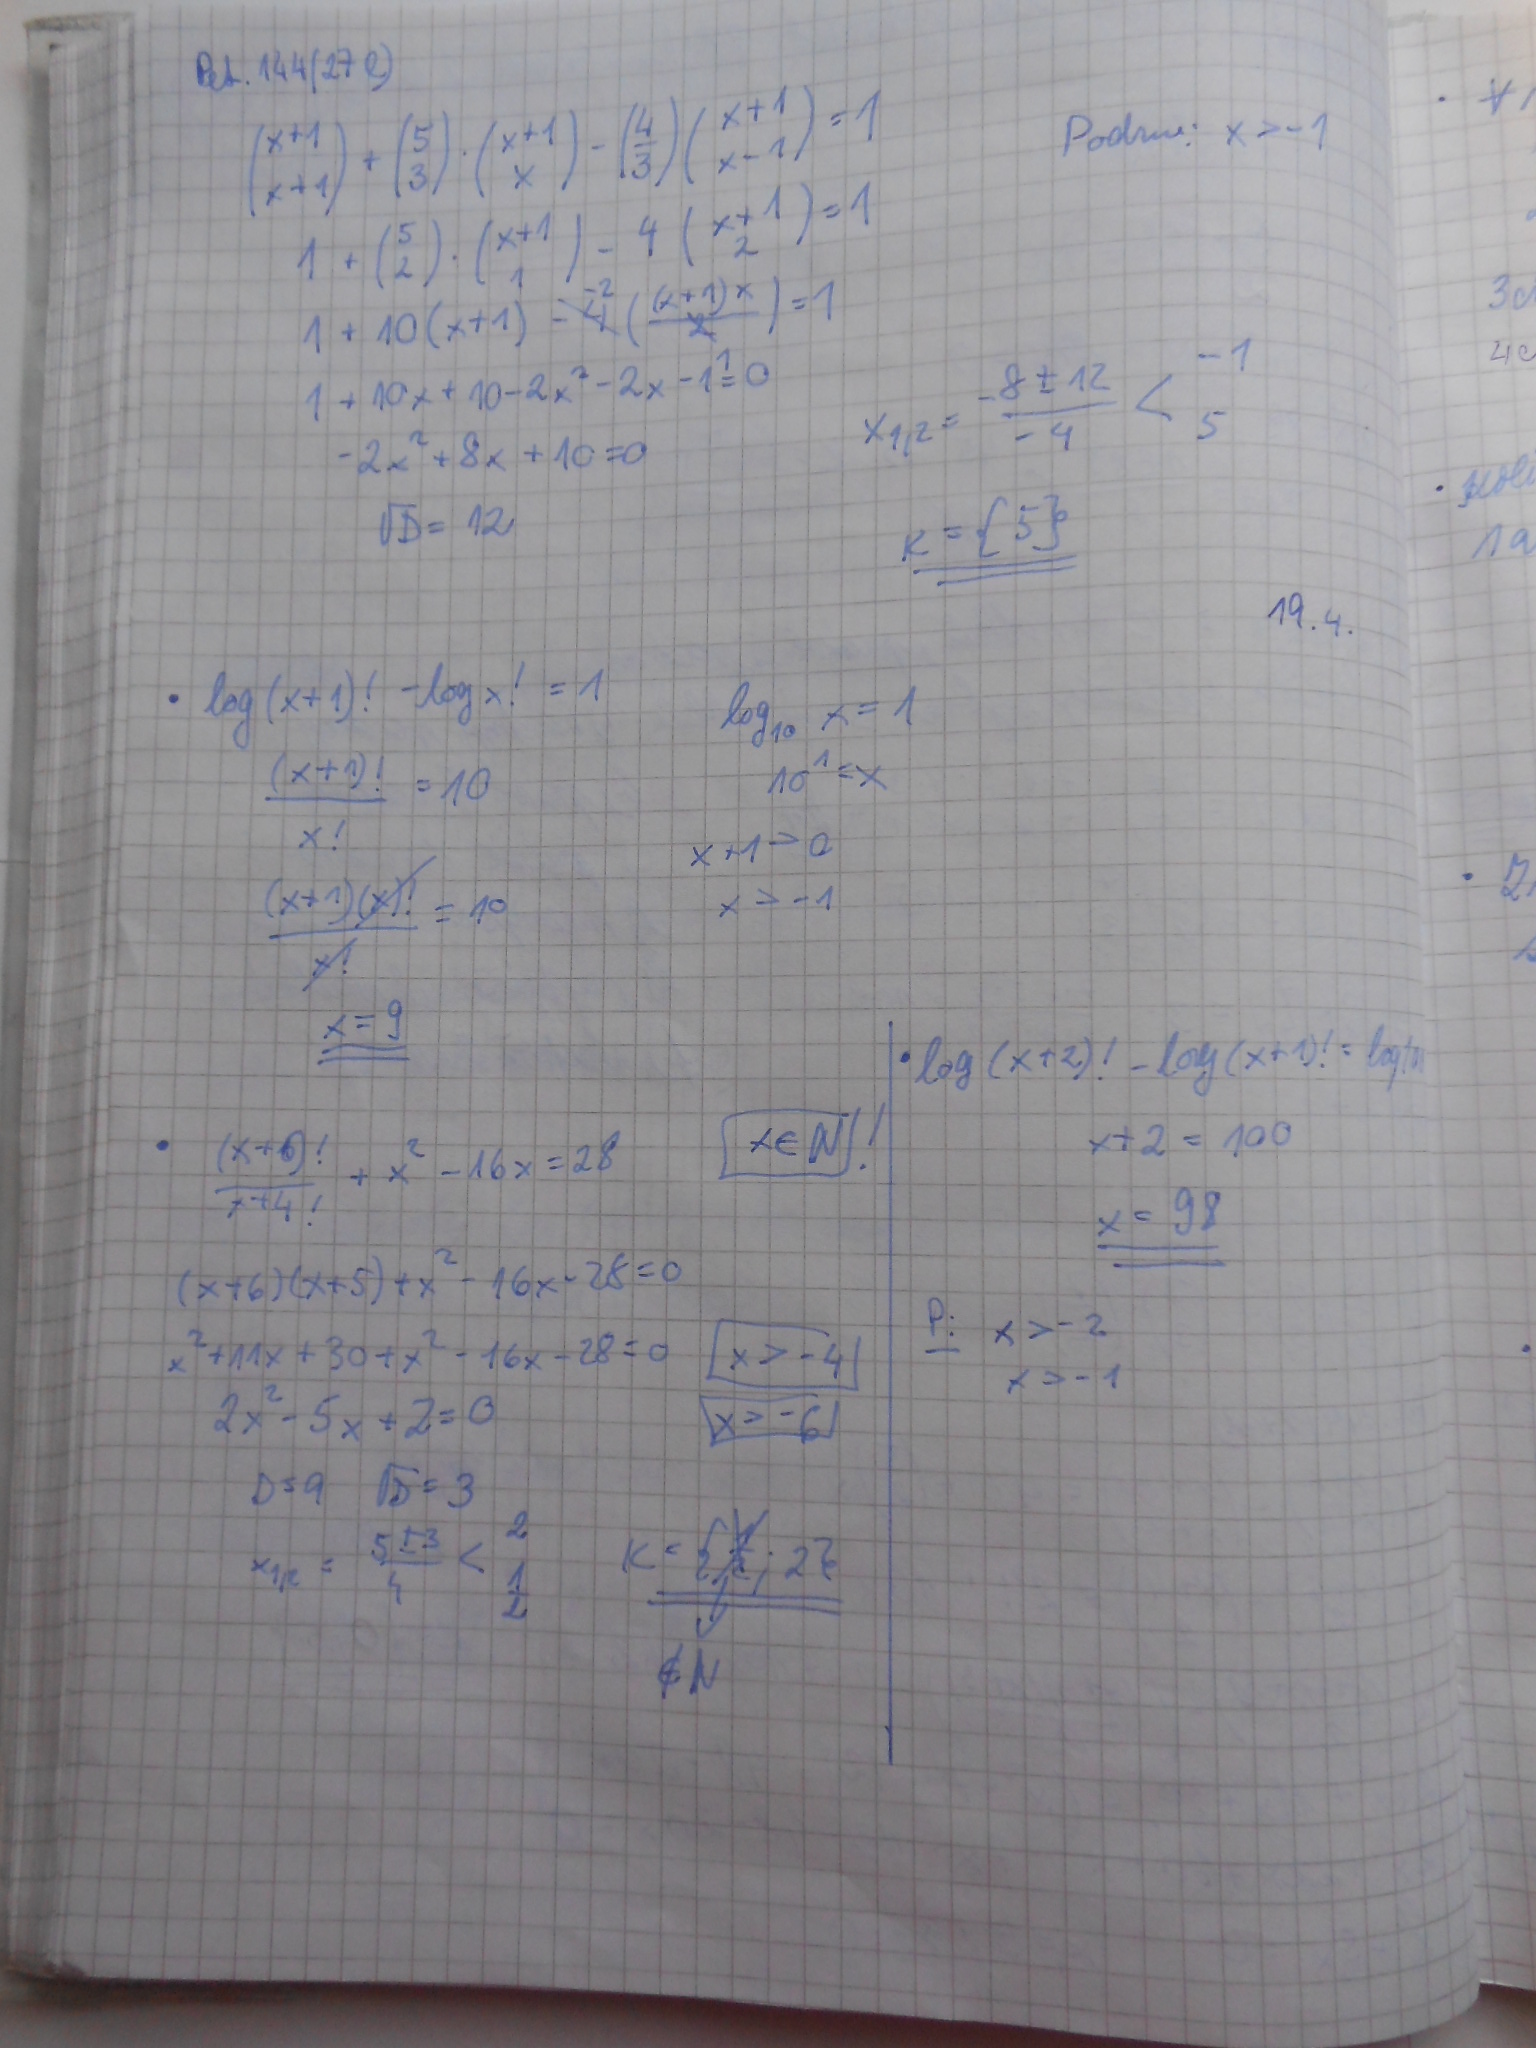 Pet. 144 (27 e)
(x+1 / x+1) + (5 / 3) · (x+1 / x) - (4 / 3) (x+1 / x-1) = 1
Podm: x > -1
1 + (5 / 2) · (x+1 / 1) - 4 (x+1 / 2) = 1
1 + 10(x+1) - 4 -2 ((x+1)x / 2) = 1
1 + 10x + 10 - 2x² - 2x - 1 = 0
-2x² + 8x + 10 = 0
√D = 12
x1,2 = -8 ± 12 / -4 < -1
5
K = {5}
19. 4.
• log (x+1)! - log x! = 1
(x+1)! / x! = 10
(x+1)(x)! / x! = 10
x = 9
log10 x = 1
10¹ = x
x + 1 > 0
x > -1
• (x+6)! / x+4! + x² - 16x = 28
x ∈ N !
(x+6)(x+5) + x² - 16x - 28 = 0
x² + 11x + 30 + x² - 16x - 28 = 0
x > -4
2x² - 5x + 2 = 0
x > -6
D = 9 √D = 3
x1,2 = 5 ± 3 / 4 < 2
1/2
K = { 1/2 ; 2}
∉ N
• log (x+2)! - log (x+1)! = log
x + 2 = 100
x = 98
P: x > -2
x > -1
3
4
1a